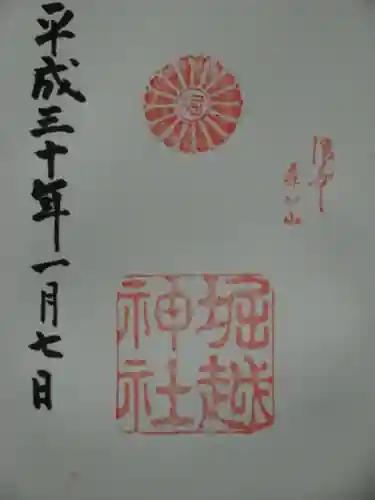 堀越
神社
平成三十年一月七日